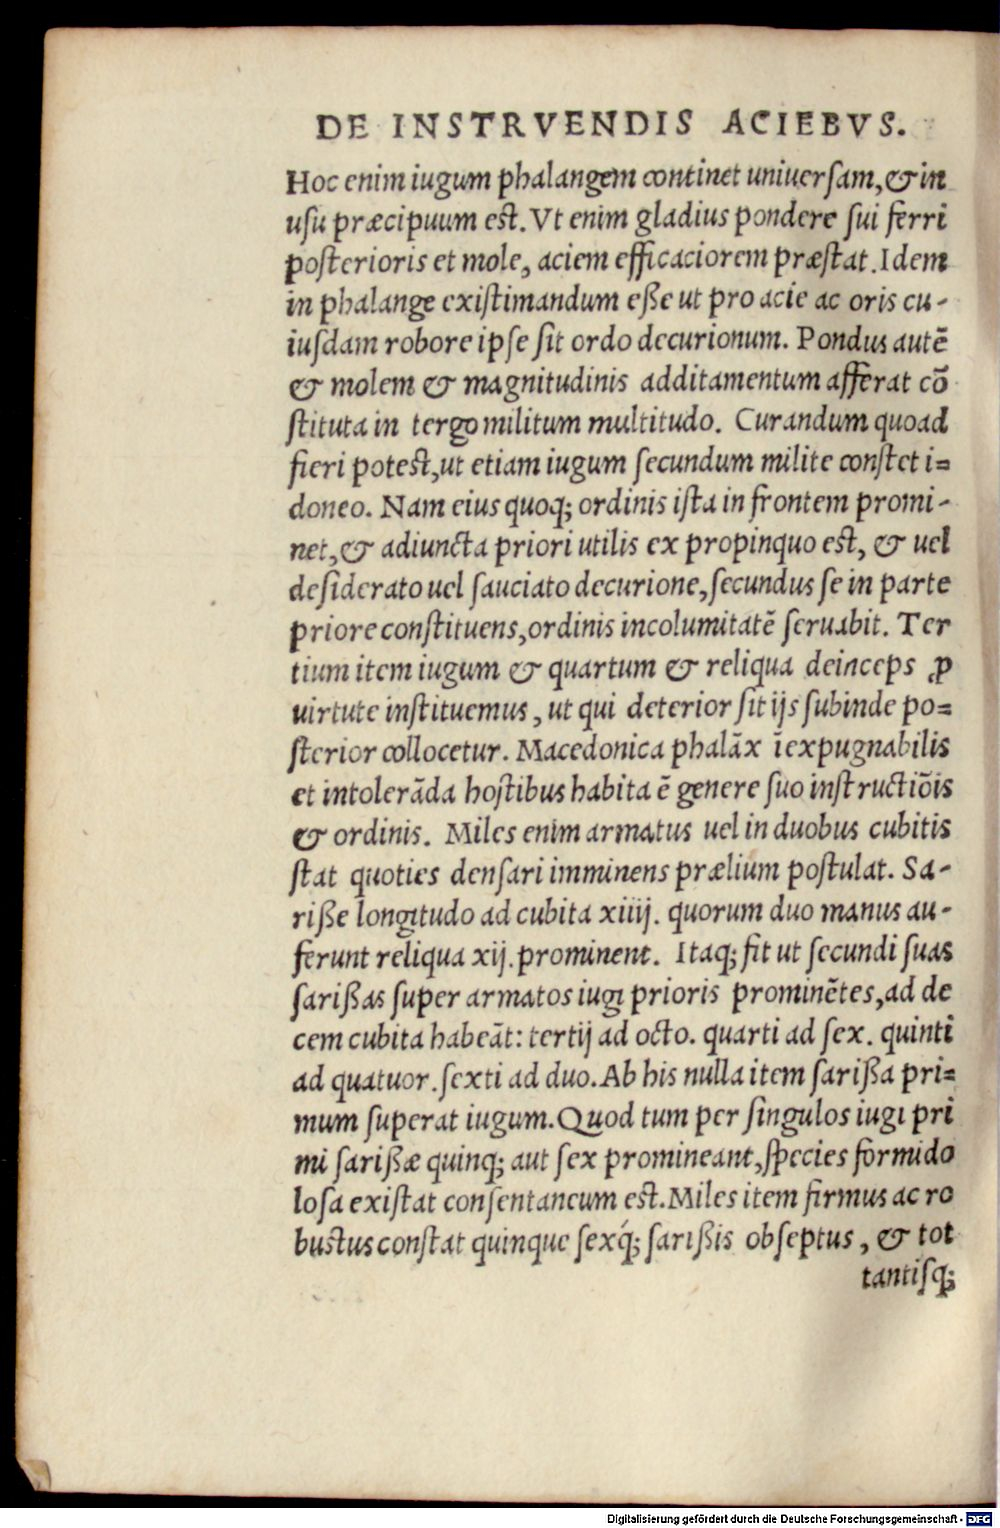 DE INSTRVENDIS ACIEBVS.
Hoc enim iugum phalangem continet uniuersam, & in
usu præcipuum est. Vt enim gladius pondere sui ferri
posterioris et mole, aciem efficaciorem præstat. Idem
in phalange existimandum eße ut pro acie ac oris cu-
iusdam robore ipse sit ordo decurionum. Pondus autē
& molem & magnitudinis additamentum afferat cō
stituta in tergo militum multitudo. Curandum quoad
fieri potest, ut etiam iugum secundum milite constet i=
doneo. Nam eius quoq; ordinis ista in frontem promi-
net, & adiuncta priori utilis ex propinquo est, & uel
desiderato uel sauciato decurione, secundus se in parte
priore constituens, ordinis incolumitatē seruabit. Ter
tium item iugum & quartum & reliqua deinceps ꝓ
uirtute instituemus, ut qui deterior sit ijs subinde po=
sterior collocetur. Macedonica phalāx īexpugnabilis
et intolerāda hostibus habita ē genere suo instructiōis
& ordinis. Miles enim armatus uel in duobus cubitis
stat quoties densari imminens prælium postulat. Sa-
riße longitudo ad cubita xiiij. quorum duo manus au-
ferunt reliqua xij. prominent. Itaq; fit ut secundi suas
sarißas super armatos iugi prioris prominētes, ad de
cem cubita habeāt: tertij ad octo. quarti ad sex. quinti
ad quatuor. sexti ad duo. Ab his nulla item sarißa pri=
mum superat iugum. Quod tum per singulos iugi pri
mi sarißæ quinq; aut sex promineant, species formido
losa existat consentaneum est. Miles item firmus ac ro
bustus constat quinque sexq́; sarißis obseptus, & tot
tantisq;
Digitalisierung gefördert durch die Deutsche Forschungsgemeinschaft - DFG